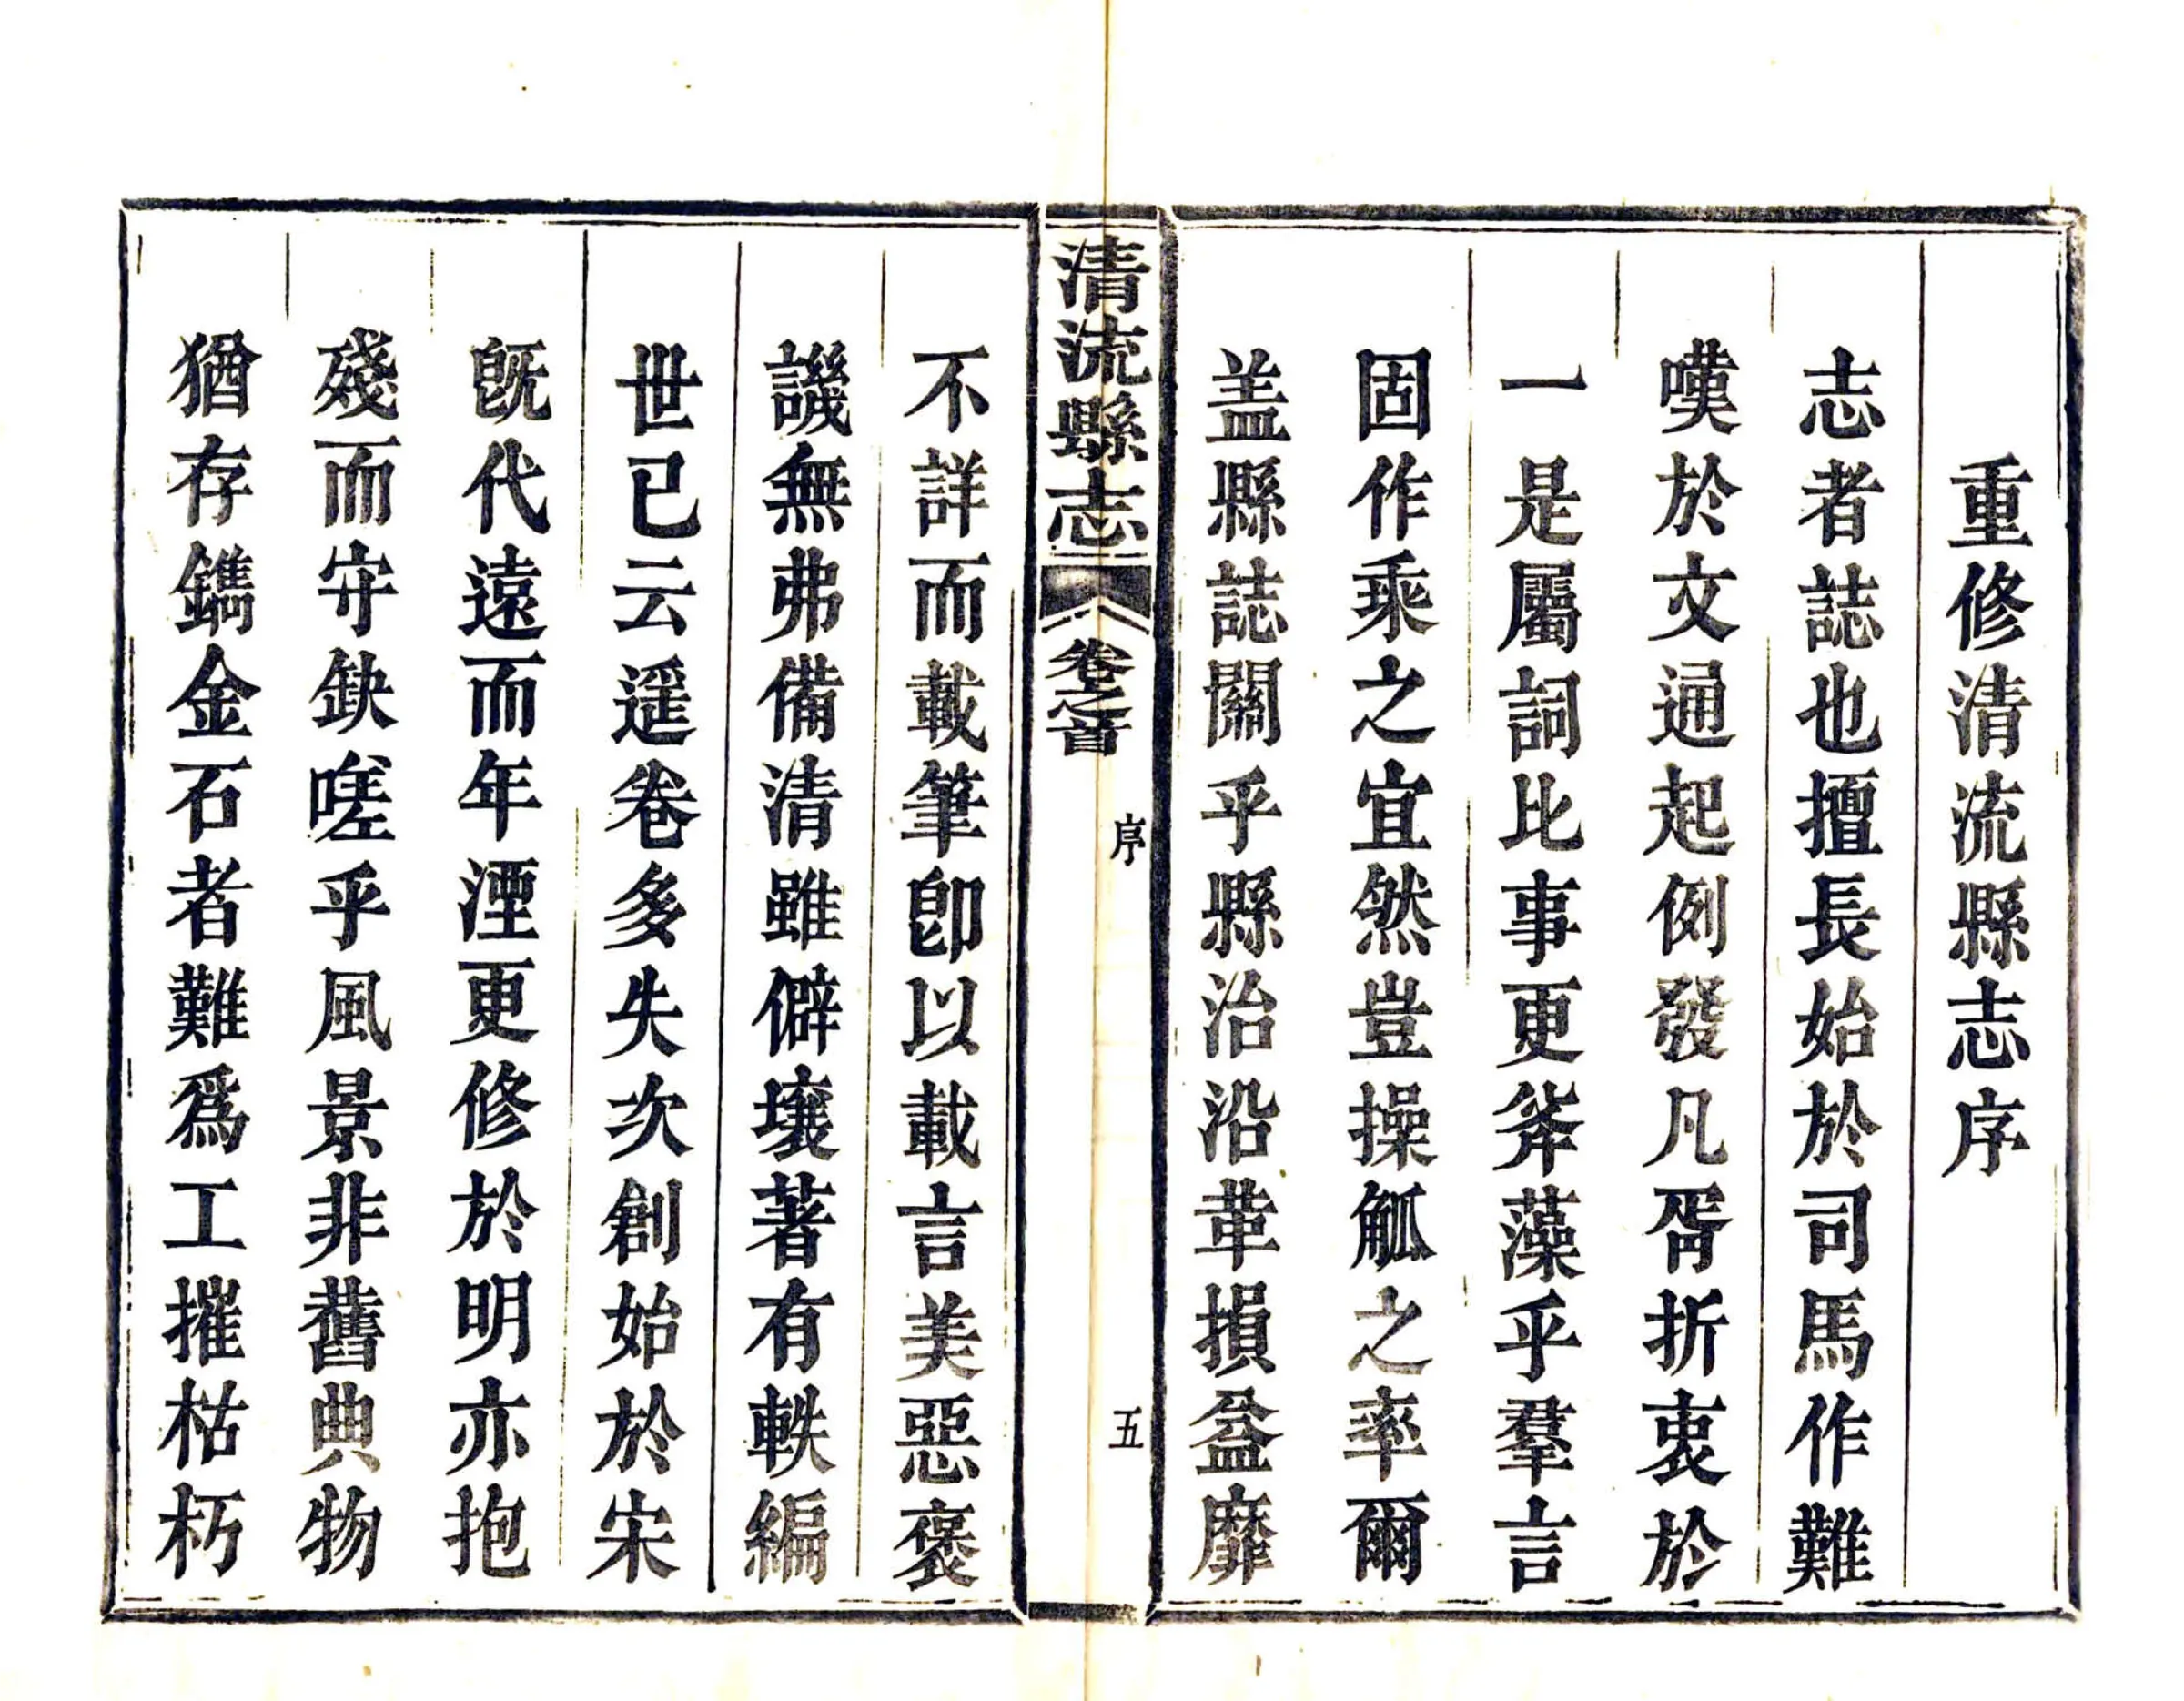 重修清流縣志序
志者誌也擅長始於司馬作難
嘆於文通起例發凡胥折衷於
一是屬詞比事更斧藻乎羣言
固作乘之宜然豈操觚之率爾
盖縣誌關乎縣治沿革損益靡
清流縣志
卷之首
序
五
不詳而載筆卽以載言美惡褒
譏無弗備清雖僻壤著有軼編
世已云遥卷多失次創始於宋
旣代遠而年湮更修於明亦抱
殘而守缺嗟乎風景非舊典物
猶存鐫金石者難爲工摧枯朽